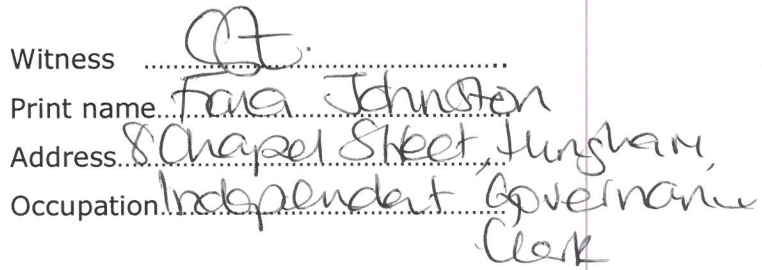 Witness
Print name Fara Johnston
Address 8 Chapel Street, Hingham,
Occupation Independent Governance
Clerk